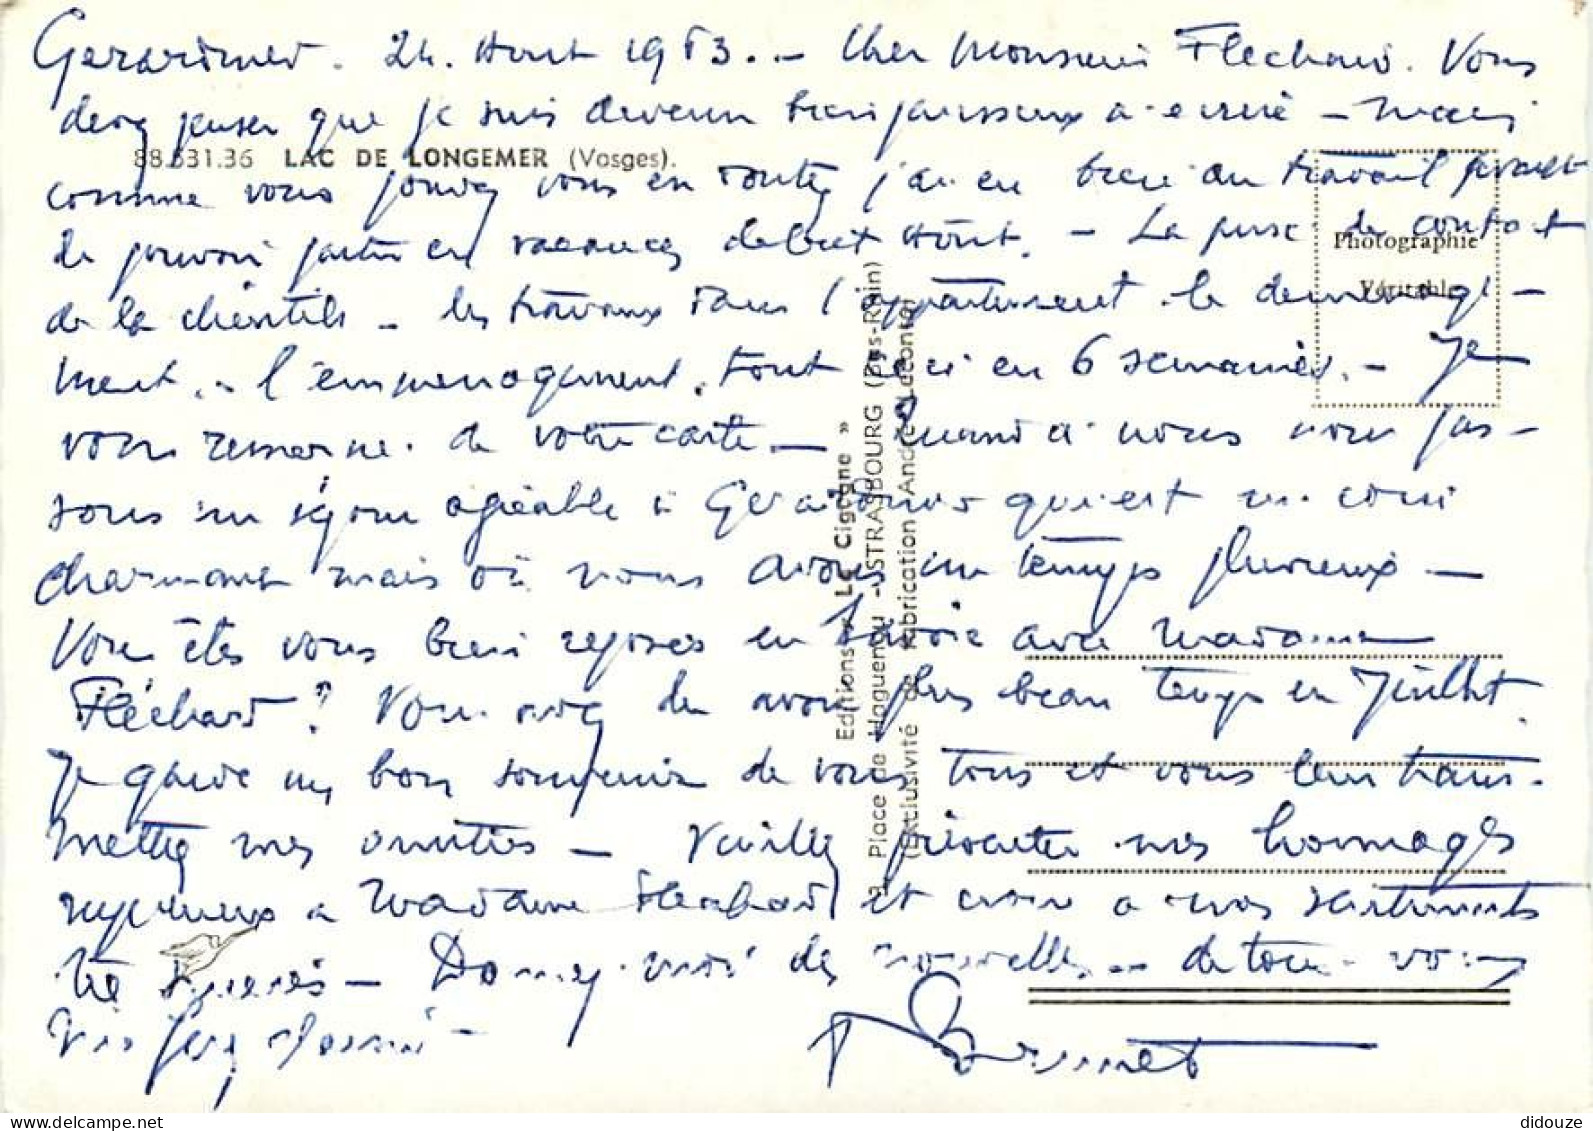 Gerardmer. 24. Aout 1963. – Cher Monsieur Flechard. Vous
devez penser que je suis devenu bien paresseux a ecrire – mais
88.631.36 LAC DE LONGEMER (Vosges).
comme vous pouvez vous en doutez j'ai eu bien du travail avant
de pouvoir partir en vacances debut Aout. – La prise de contact
Photographie
Véritable
de la clientele – les travaux dans l'appartement le demenage-
ment. – l'emmenagement. tout ceci en 6 semaines. – Je
vous remercie de votre carte – Quand a nous nous pas-
sons un séjour agréable à Gerardmer qui est un coin
charmant mais où nous avons un temps pluvieux –
Vous êtes vous bien reposés en Savoie avec Madame
Fléchard? Vous avez du avoir plus beau temps en Juillet.
Je garde un bon souvenir de vous tous et vous leur trans-
mettrez mes amitiés – Veuillez présenter mes hommages
respectueux a Madame Flechard et croire a mes sentiments
très sincères – Donnez moi des nouvelles – de tous vous
Brunet
Editions « La Cigogne »
3 Place de Haguenau - STRASBOURG (Bas-Rhin)
(Exclusivité de Fabrication André Leconte)
didouze